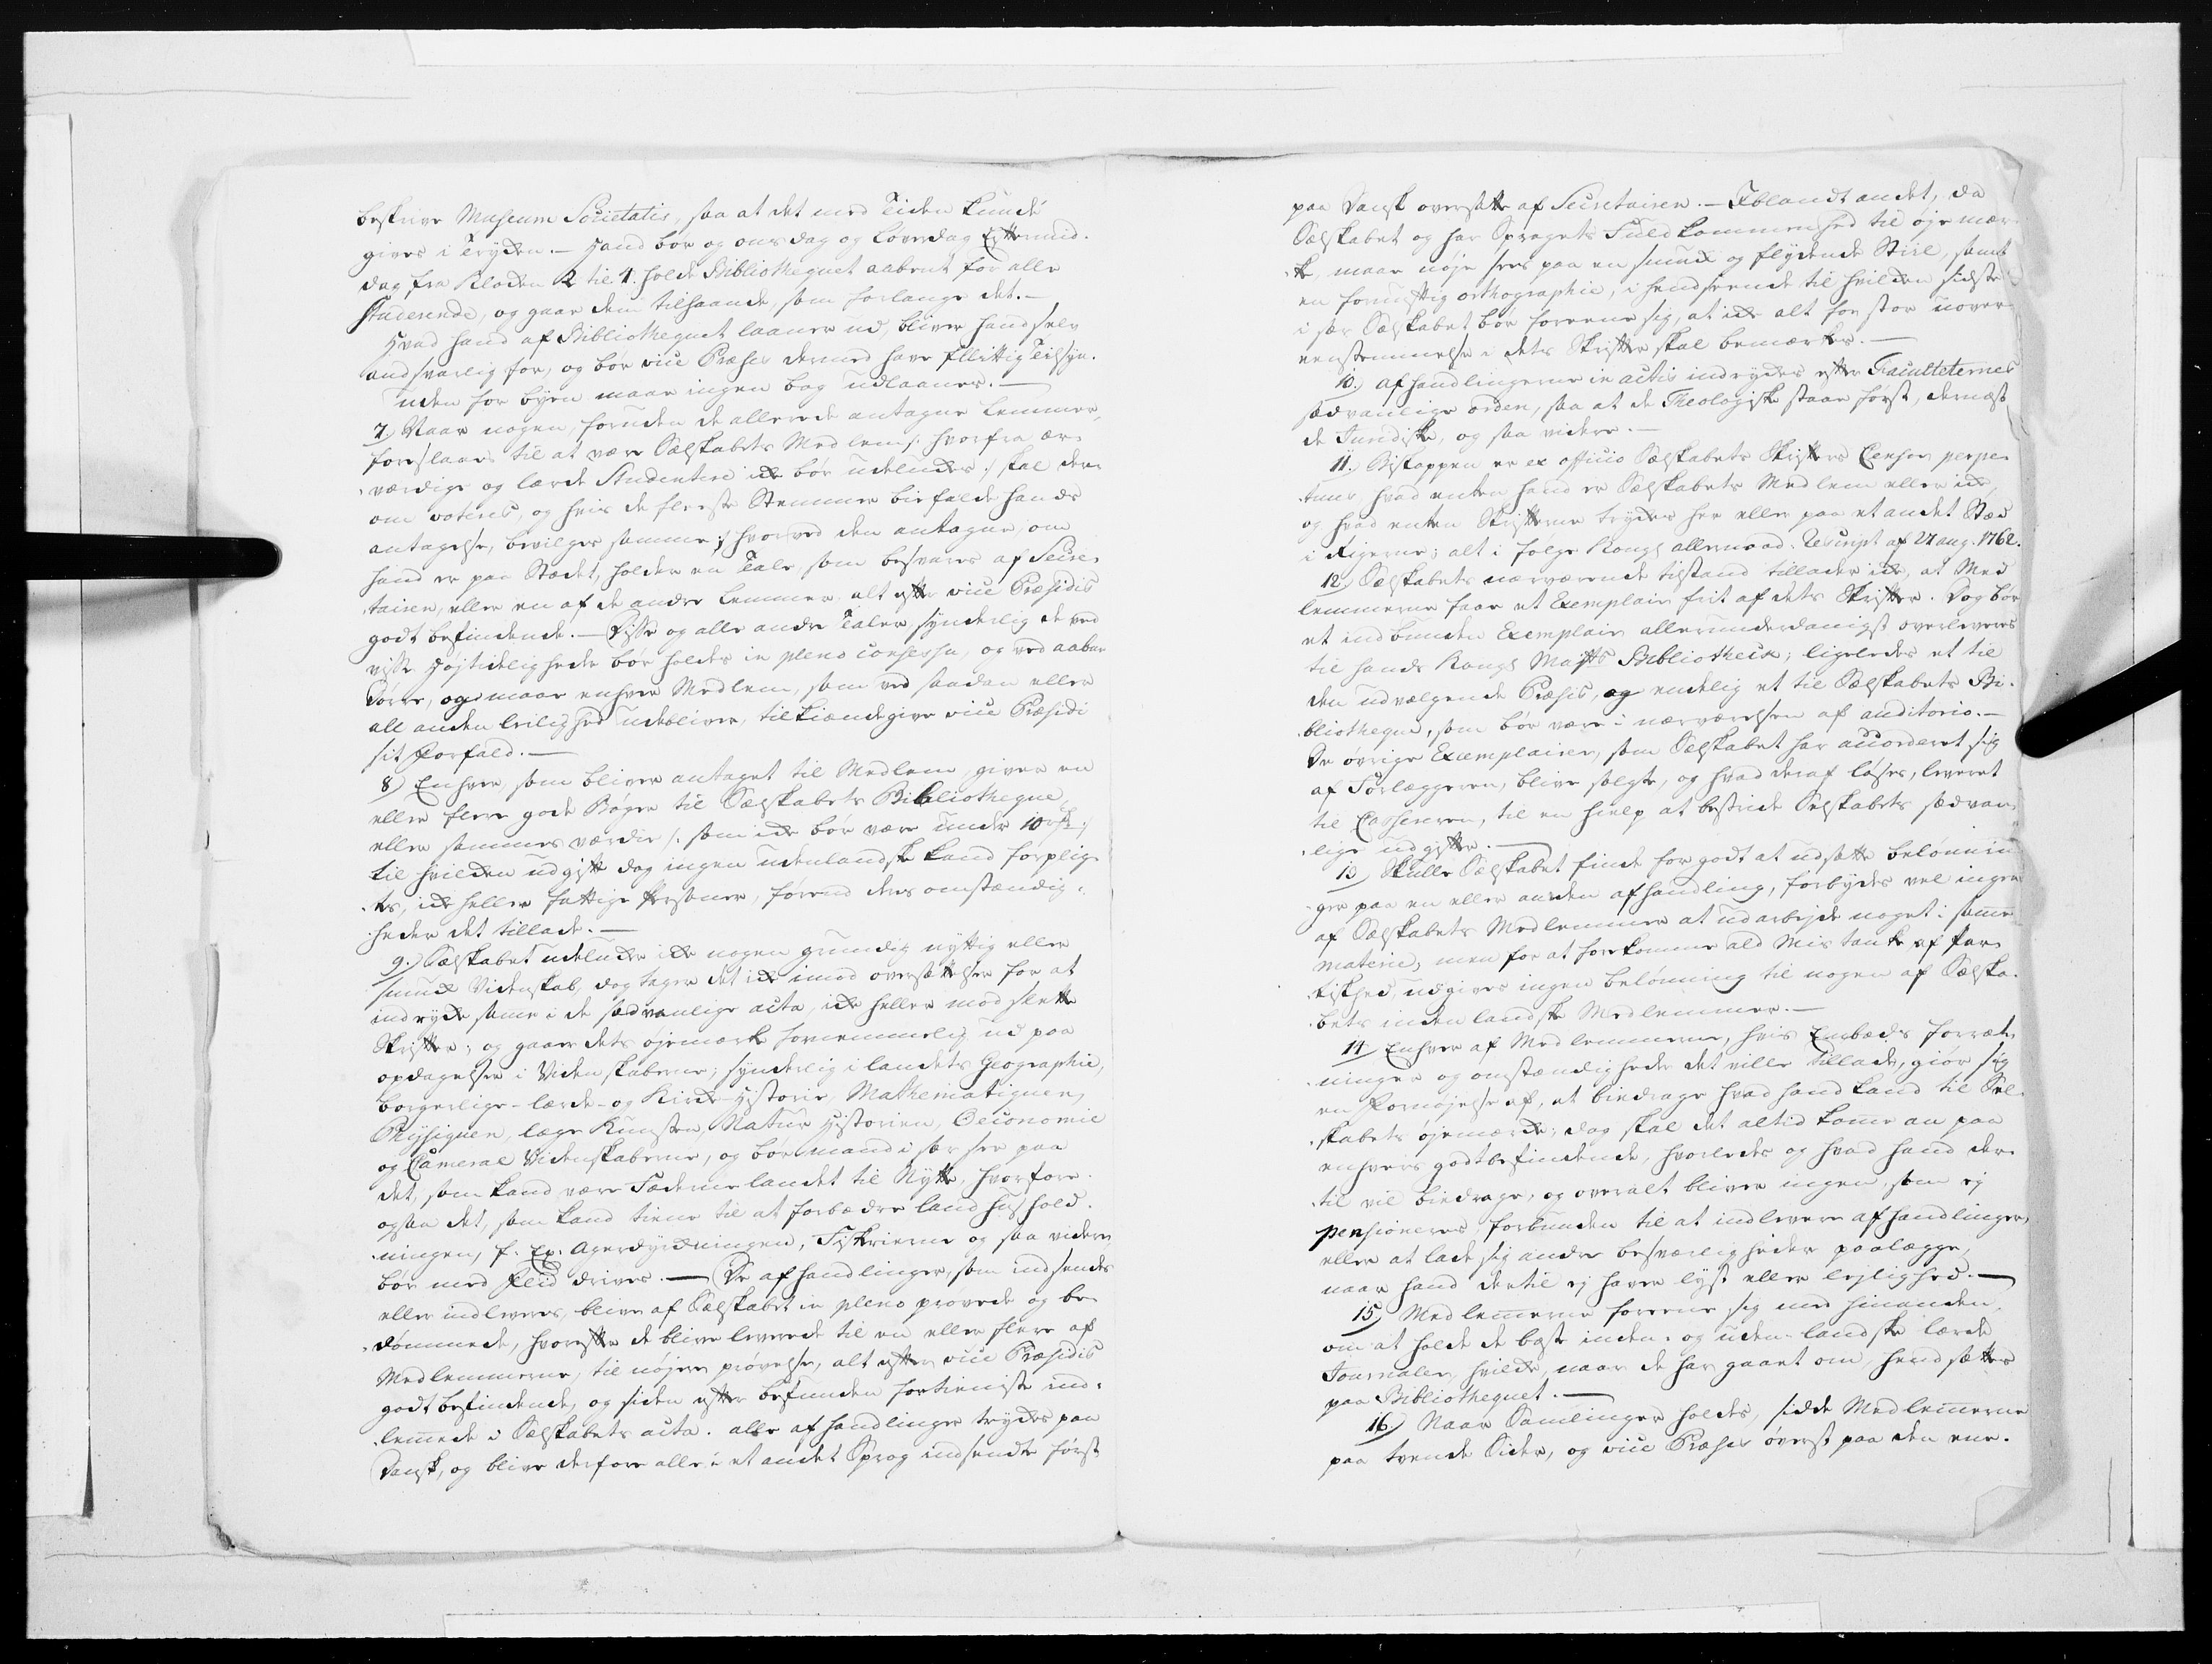 beskrive Museum Societatis, saa at det med Tiden kunde
gives i Trykken. — Hand bør og onsdag og Løverdag Eftermid-
dag fra Klocken 2 til 4. holde Bibliothequet aabent for alle
Studerende, og gaar dem tilhaande, som forlange det. —
Hvad hand af Bibliothequet laaner ud, bliver hand selv
andsvarlig for, og bør vice Præses dermed have flittig Tilsyn.
uden for byen maae ingen bog udlaanes. —
7.) Naar nogen, foruden de allerede antagne Lemmer
foreslaaes til at være Selskabets Medlem /: hvorfra ær-
værdige og lærde Studentere icke bør udelukkes :/ skal der-
om voteres, og hvis de fleeste Stemmer biefalde hands
antagelse, bevilges samme; hvorved den antagne, om
hand er paa Stædet, holder en Tale, som besvares af Secre-
tairen, eller en af de andre Lemmer, alt efter vice Præsidis
godt befindende. — Disse og alle andre Taler, synderlig de ved
visse Højtideligheder bør holdes in pleno consessu, og ved aabne
Dørre, og maae enhver Medlem, som ved saadan eller
all anden leilighed udebliver, tilkiendegive vice Præsidi
sit Forfald. —
8.) Enhver, som bliver antaget til Medlem, giver en
eller flere gode Bøger til Selskabets Bibliotheque,
eller sammes værdie /: som icke bør være under 10 rdr :/
til hvilken udgift dog ingen udenlandske kand forplig-
tes, icke heller fattige Personer, førend deres omstændig-
heder det tillade. —
9.) Selskabet udelukker icke nogen grundig nyttig eller
smuck Videnskab, dog tager det icke imod oversættelser for at
indrykke samme i de sædvanlige acta, icke heller mod slette
Skrifter; og gaaer dets øjemærke fornemmelig ud paa
opdagelser i Videnskaberne; synderlig i landets Geographie,
borgerlige- lærde- og Kirke-Historie, Mathematiquen,
Physiquen, læge Kunsten, Natur Historien, Oeconomie
og Cameral Videnskaberne, og bør mand i sær see paa
det, som kand være Fædernelandet til Nytte, hvorfore
ogsaa det, som kand tiene til at forbædre landhuushold-
ningen, f. Ex. Agerdyrkningen, Fiskerierne og saa videre
bør med Flid drives. — De afhandlinger, som indsendes
eller indleveres, blive af Selskabet in pleno prøvede og be-
dømmede, hvorefter de blive leverede til en eller flere af
Medlemmerne, til nøjere prøvelse, alt efter vice Præsidis
godt befindende, og siden efter befunden fortieniste ind-
lemmede i Selskabets acta. alle afhandlinger trykkes paa
Dansk, og blive derfore alle i et andet Sprog indsendte først
paa Dansk oversatte af Secretairen. — Iblandt andet, da
Selskabet og har Sprogets Fuldkommenhed til øjemær-
ke, maae nøje sees paa en smuck og flydende Stiil, samt
en fornuftig orthographie, i henseende til hvilken sidste
i sær Selskabet bør foreene sig, at icke alt for stor uover-
eenstemmelse i dets Skrifter skal bemærkes. —
10.) afhandlingerne in actis indrykkes efter Faculteternes
sædvanlige orden, saa at de Theologiske staar først, dernæst
de Juridiske, og saa videre. —
11.) Biskoppen er ex officio Selskabets Skrifters Censor perpe-
tuus, hvad enten hand er Selskabets Medlem eller icke,
og hvad enten Skrifterne trykkes her eller paa et andet Stæd
i Rigerne; alt i følge Kongl. allernaad. Rescript af 27 aug. 1762.
12.) Selskabets nærværende tilstand tillader icke, at Med-
lemmerne faar et Exemplair frit af dets Skrifter. Dog bør
et indbunden Exemplair allerunderdanigst overleveres
til hands Kongl. Maj:ts Bibliotheck; ligeledes et til
den udvælgende Præses, og endelig et til Selskabets Bi-
bliotheque, som bør være i nærværelsen af auditorio. —
De øvrige Exemplairer, som Selskabet har accorderet sig
af Forlæggeren, blive solgte, og hvad deraf løses, leveret
til Cassereren, til en hielp at bestride Selskabets sædvan-
lige udgifter. —
13.) Skulle Selskabet finde for godt at udsætte belønnin-
ger paa en eller anden afhandling, forbydes vel ingen
af Selskabets Medlemmer at udarbejde noget i samme
materie, men for at forekomme ald Mistanke af par-
tiskhed, udgives ingen belønning til nogen af Selska-
bets indenlandske Medlemmer. —
14.) Enhver af Medlemmerne, hvis Embeds forret-
ninger og omstændigheder det ville tillade, giør sig
en Fornøjelse af, at biedrage hvad hand kand til Sel-
skabets øjemærke; dog skal det altid komme an paa
enhvers godtbefindende, hvorledes og hvad hand der-
til vil biedrage, og overalt bliver ingen, som ej
pensioneres forbunden til at indlevere afhandlinger,
eller at lade sig andre besværligheder paalægge,
naar hand dertil ej haver lyst eller lejlighed. —
15.) Medlemmerne foreene sig med hinanden,
om at holde de bæste inden- og uden-landske lærde
Journaler, hvilke, naar de har gaaet om, hensættes
paa Bibliothequet. —
16.) Naar Samlinger holdes, sidde Medlemmerne
paa tvende Sider, og vice Præses øverst paa den ene.